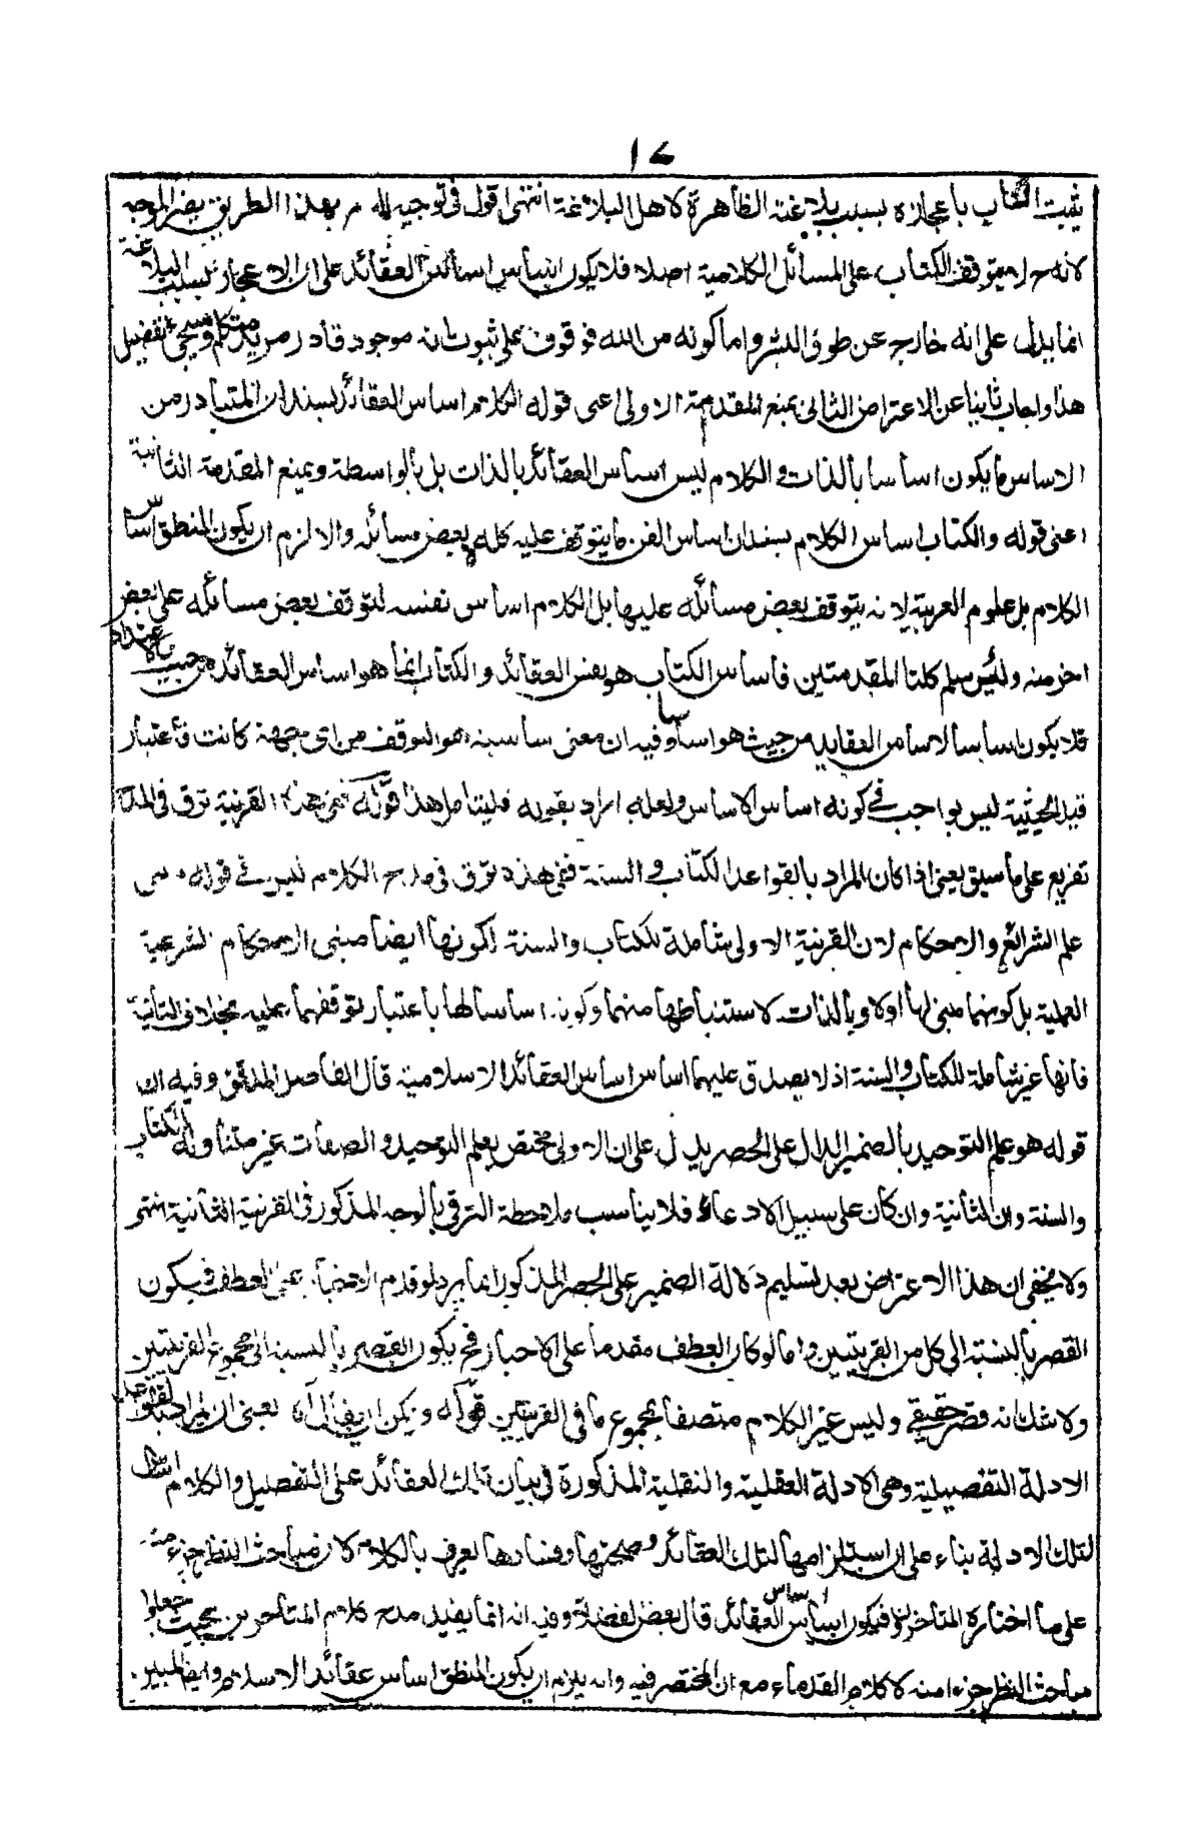 ١٧
يثبت الكتاب باعجازه بسبب بلاغته الظاهرة لاهل البلاغة انتهى اقول في توجيهه بهذا الطريق يضر الموجه
لانه ح لم يتوقف الكتاب على المسائل الكلامية اصلا فلا يكون اساس اساس العقائد على ان الاعجاز بسبب البلاغة
انما يدل على انه خارج عن طوق البشر واما كونه من الله فموقوف على ثبوت انه موجود قادر مريد متكلم وسيجئ تفصيل
هذا واجاب ثانيا عن الاعتراض الثاني بمنع المقدمة الاولى اعنى قوله الكلام اساس العقائد بسند ان المتبادر من
الاساس ما يكون اساسا بالذات والكلام ليس اساس العقائد بالذات بل بالواسطة وبمنع المقدمة الثانية
اعنى قوله والكتاب اساس الكلام بسند ان اساس الفن ما يتوقف عليه كله لا بعض مسائله والا لزم ان يكون المنطق اساس
الكلام بل علوم العربية لانه يتوقف بعض مسائله عليها بل الكلام اساس نفسه لتوقف بعض مسائله على بعض
اخر منه ولئن سلم كلتا المقدمتين فاساس الكتاب هو نفس العقائد والكتاب انما هو اساس العقائد من حيث الاعتداد
فلا يكون اساسا لاساس العقايد من حيث هو اساس وفيه ان معنى اساسيته هو التوقف من اى جهة كانت فاعتبار
قيد الحيثية ليس بواجب في كونه اساس الاساس ولعله اراد بقوله فليتامل هذا قوله ففى هذه القرينة ترق في المدح
تفريع على ما سبق يعنى اذا كان المراد بالقواعد الكتاب والسنة ففى هذه ترق في مدح الكلام ليس في قوله مبنى
علم الشرائع والاحكام لان القرينة الاولى شاملة للكتاب والسنة لكونها ايضا مبنى الاحكام الشرعية
العملية بل كونهما مبنى لها اولا وبالذات لاستنباطها منهما وكونه اساسا لها باعتبار توقفهما عليه بخلاف الثانية
فانها غير شاملة للكتاب والسنة اذ لا يصدق عليهما اساس اساس العقائد الاسلامية قال الفاضل المدقق وفيه ان
قوله هو علم التوحيد بالضمير الدال على الحصر يدل على ان الاولى مختص بعلم التوحيد والصفات غير متناوله الكتاب
والسنة وان الثانية وان كان على سبيل الادعاء فلا يناسب ملاحظة الترقى بالوجه المذكور في القرينة الثانية انتهى
ولا يخفى ان هذا الاعتراض بعد تسليم دلالة الضمير على الحصر المذكور انما يرد لو قدم الاخبار على العطف فيكون
القصر بالنسبة الى كل من القرينتين واما لو كان العطف مقدما على الاخبار فح يكون القصر بالنسبة الى مجموع القرينتين
ولا شك انه قصر حقيقي وليس غير الكلام متصفا بمجموع ما في القرينتين قوله ويمكن ان يقال اه يعنى ان المراد بالقواعد
الادلة التفصيلية وهى الادلة العقلية والنقلية المذكورة في بيان تلك العقائد على التفصيل والكلام اساس
لتلك الادلة بناء على ان استلزامها لتلك العقائد وصحتها وفسادها يعرف بالكلام لان مباحث النظر جزء منه
على ما اختاره المتاخرون فيكون اساس اساس العقائد قال بعض الفضلاء وفيه انه انما يفيد مدح كلام المتاخرين حيث جعلوا
مباحث النظر جزءا منه لا كلام القدماء مع ان المختصر فيه وانه يلزم ان يكون المنطق اساس عقائد الاسلام وايضا